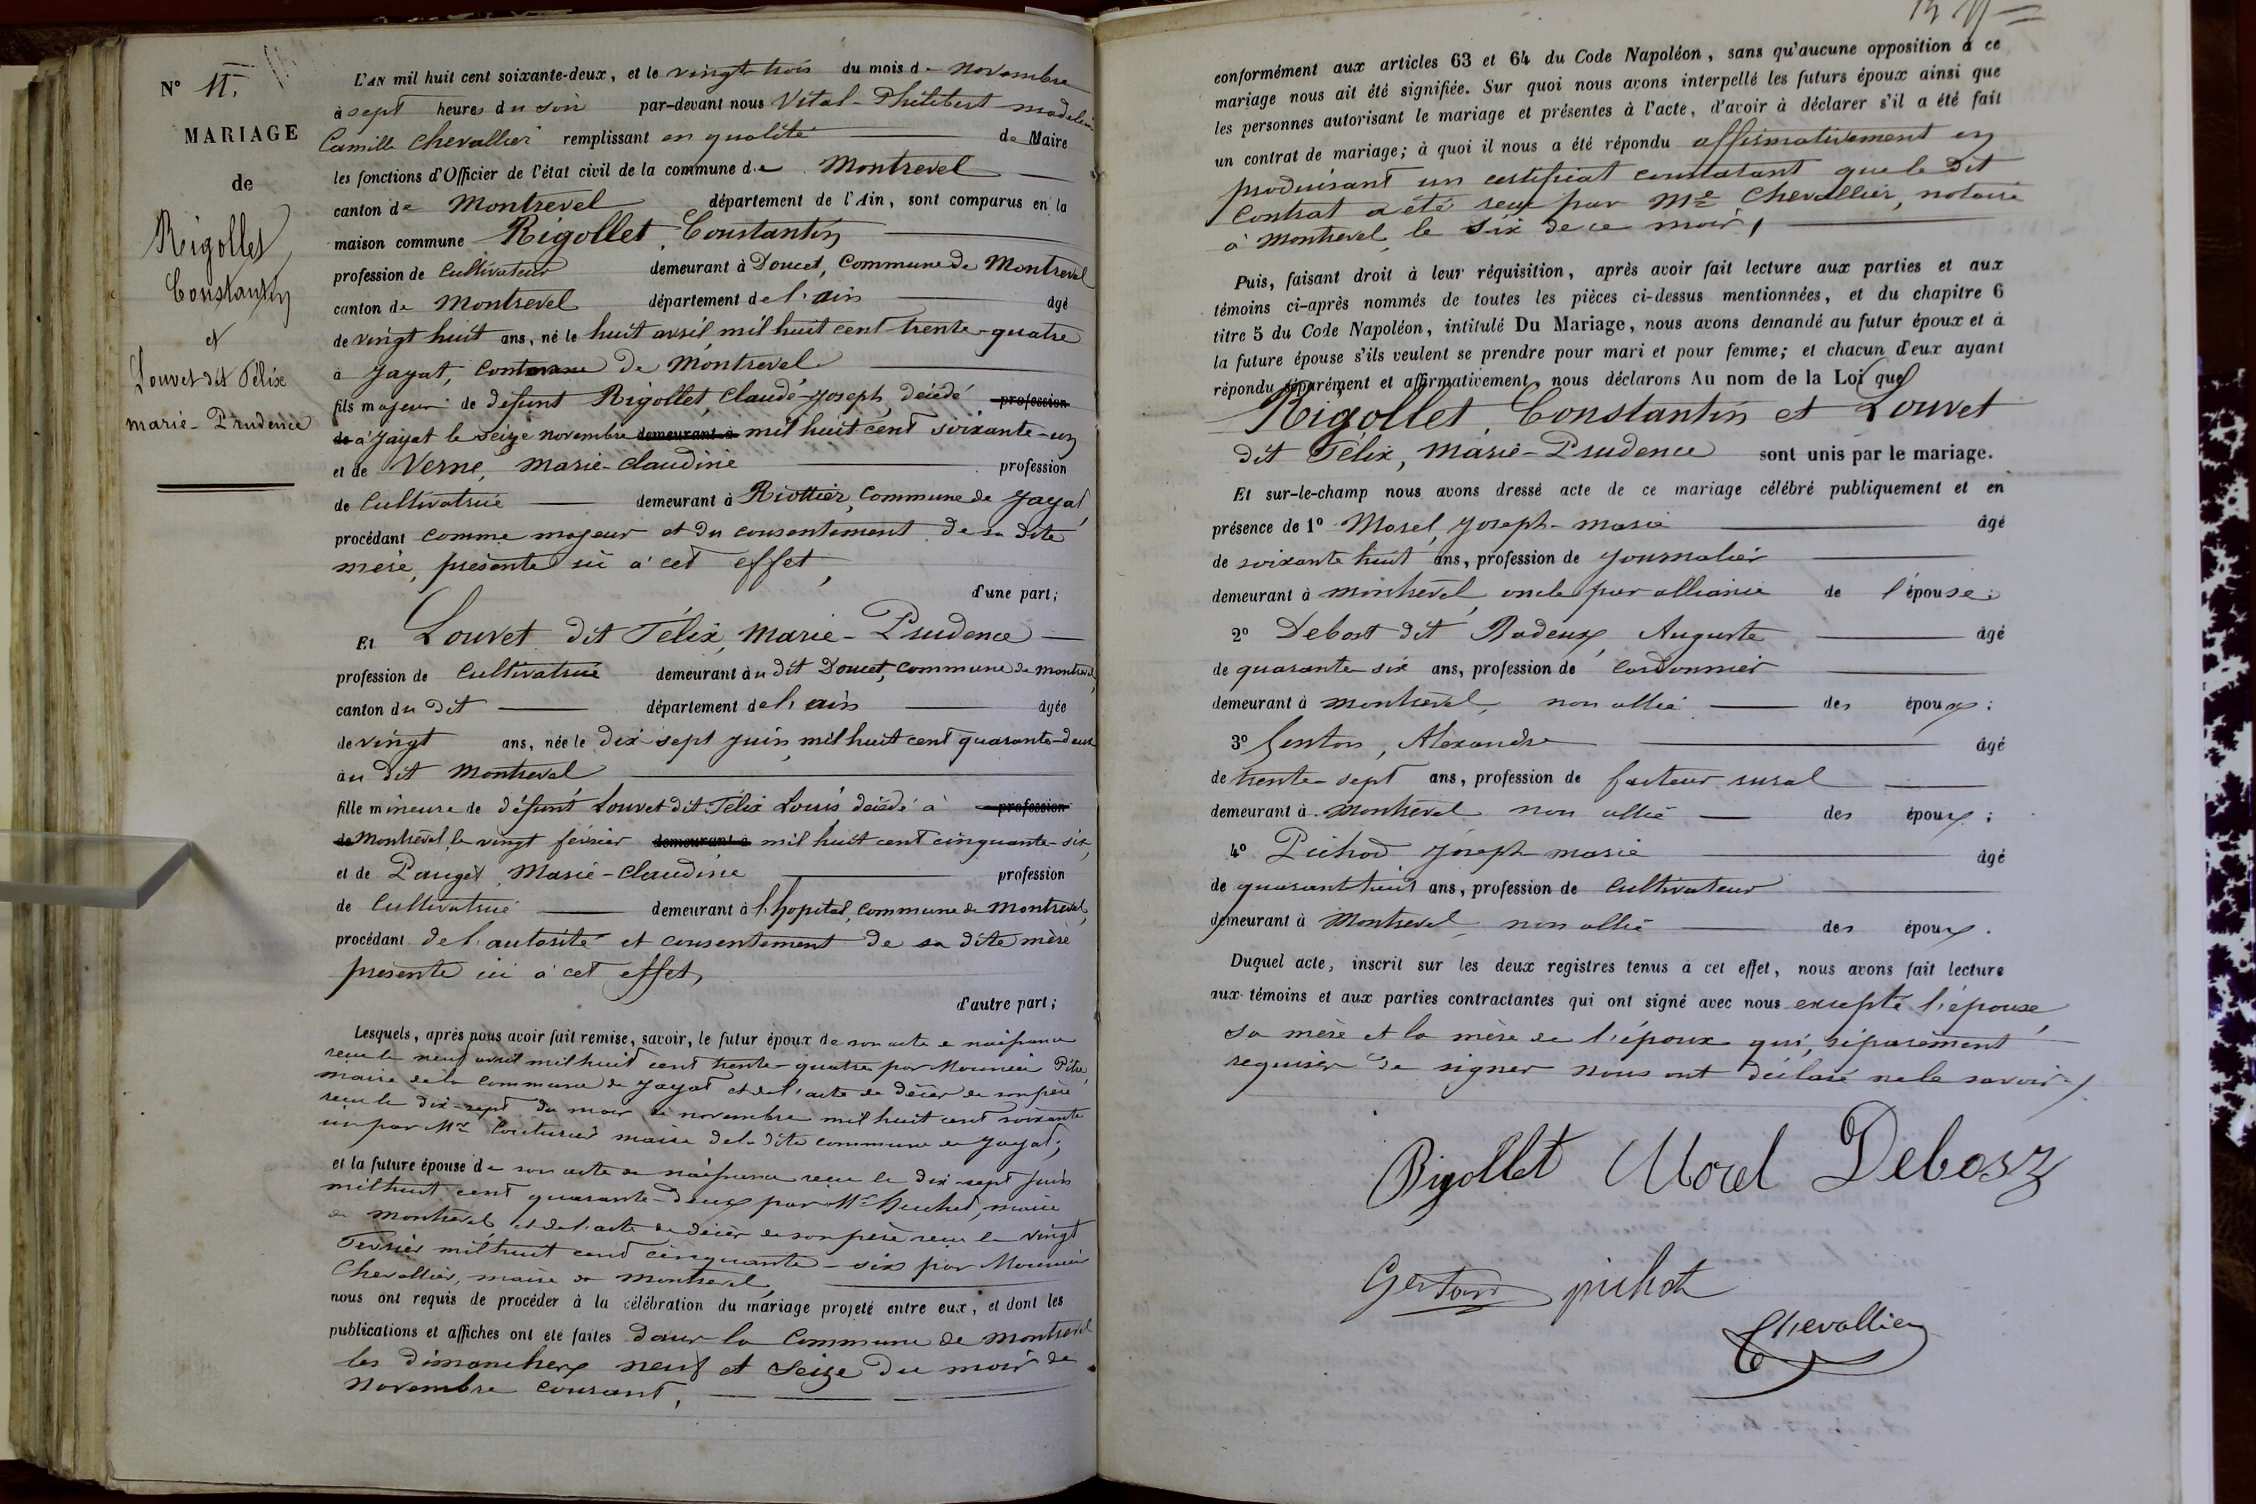 N° 11.
MARIAGE
de
Rigollet
Constantin
et
Louvet dit Félix
marie-Prudence
L'AN mil huit cent soixante-deux, et le vingt-trois du mois de novembre
à sept heures du soir par-devant nous Vital-Philibert-madelein
Camille Chevallier remplissant en qualité de Maire
les fonctions d'Officier de l'état civil de la commune de Montrevel
canton de Montrevel département de l'Ain, sont comparus en la
maison commune Rigollet, Constantin
profession de Cultivateur demeurant à Doucet, Commune de Montrevel
canton de Montrevel département de l'ain âgé
de vingt huit ans, né le huit avril mil huit cent trente-quatre
à Jayat, Canton de Montrevel
fils majeur de défunt Rigollet, Claude-Joseph, décédé profession
de à Jayat le seize novembre demeurant à mil huit cent soixante-un
et de Verne, Marie-Claudine profession
de Cultivatrice demeurant à Riottier, Commune de Jayat,
procédant comme majeur et du consentement de sa dite
mère, présente ici à cet effet,
d'une part;
Et Louvet dit Félix, Marie-Prudence
profession de Cultivatrice demeurant au dit Doucet, commune de montrevel,
canton du dit département de l'ain âgée
de vingt ans, née le dix-sept juin mil huit cent quarante-deux
au dit Montrevel
fille mineure de défunt Louvet dit Félix Louis, décédé à profession
de Montrevel, le vingt février demeurant à mil huit cent cinquante-six,
et de Pauget, Marie-Claudine profession
de Cultivatrice demeurant à l'hopital, commune de Montrevel,
procédant de l'autorité et consentement de sa dite mère
présente ici à cet effet,
d'autre part;
Lesquels, après nous avoir fait remise, savoir, le futur époux de son acte de naissance
reçu le neuf avril mil huit cent trente-quatre par Monsieur Pitre,
maire de la commune de Jayat et de l'acte de décès de son père
reçu le dix-sept du mois de novembre mil huit cent soixante
un par Mr Couturier maire de la dite commune de Jayat;
et la future épouse de son acte de naissance reçu le dix-sept juin
mil huit cent quarante-deux par Mr Huchet, maire
de Montrevel, et de l'acte de décès de son père reçu le vingt
Février mil huit cent cinquante-six par Monsieur
Chevallier, maire de Montrevel,
nous ont requis de procéder à la célébration du mariage projeté entre eux, et dont les
publications et affiches ont été faites dans la Commune de Montrevel
les dimanches neuf et seize du mois de
novembre courant,
conformément aux articles 63 et 64 du Code Napoléon, sans qu'aucune opposition à ce
mariage nous ait été signifiée. Sur quoi nous avons interpellé les futurs époux ainsi que
les personnes autorisant le mariage et présentes à l'acte, d'avoir à déclarer s'il a été fait
un contrat de mariage; à quoi il nous a été répondu affirmativement en
produisant un certificat constatant que le dit
Contrat a été reçu par Me Chevallier, notaire
à Montrevel, le six de ce mois,
Puis, faisant droit à leur réquisition, après avoir fait lecture aux parties et aux
témoins ci-après nommés de toutes les pièces ci-dessus mentionnées, et du chapitre 6
titre 5 du Code Napoléon, intitulé Du Mariage, nous avons demandé au futur époux et à
la future épouse s'ils veulent se prendre pour mari et pour femme; et chacun d'eux ayant
répondu séparément et affirmativement, nous déclarons Au nom de la Loi que
Rigollet, Constantin et Louvet
dit Félix, Marie-Prudence sont unis par le mariage.
Et sur-le-champ nous avons dressé acte de ce mariage célébré publiquement et en
présence de 1° Morel, Joseph-marie âgé
de soixante huit ans, profession de Journalier
demeurant à montrevel, oncle par alliance de l'épouse;
2° Debost dit Badeux, Auguste âgé
de quarante six ans, profession de cordonnier
demeurant à montrevel, non allié des époux;
3° Genton, Alexandre âgé
de trente-sept ans, profession de facteur rural
demeurant à Montrevel non allié des époux;
4° Pichod Joseph-marie âgé
de quarante huit ans, profession de Cultivateur
demeurant à Montrevel, non allié des époux.
Duquel acte, inscrit sur les deux registres tenus à cet effet, nous avons fait lecture
aux témoins et aux parties contractantes qui ont signé avec nous excepté l'épouse,
sa mère et la mère de l'époux qui, séparément
requises de signer nous ont déclaré ne le savoir
Rigollet Morel Debost
Genton pichot
Chevallier